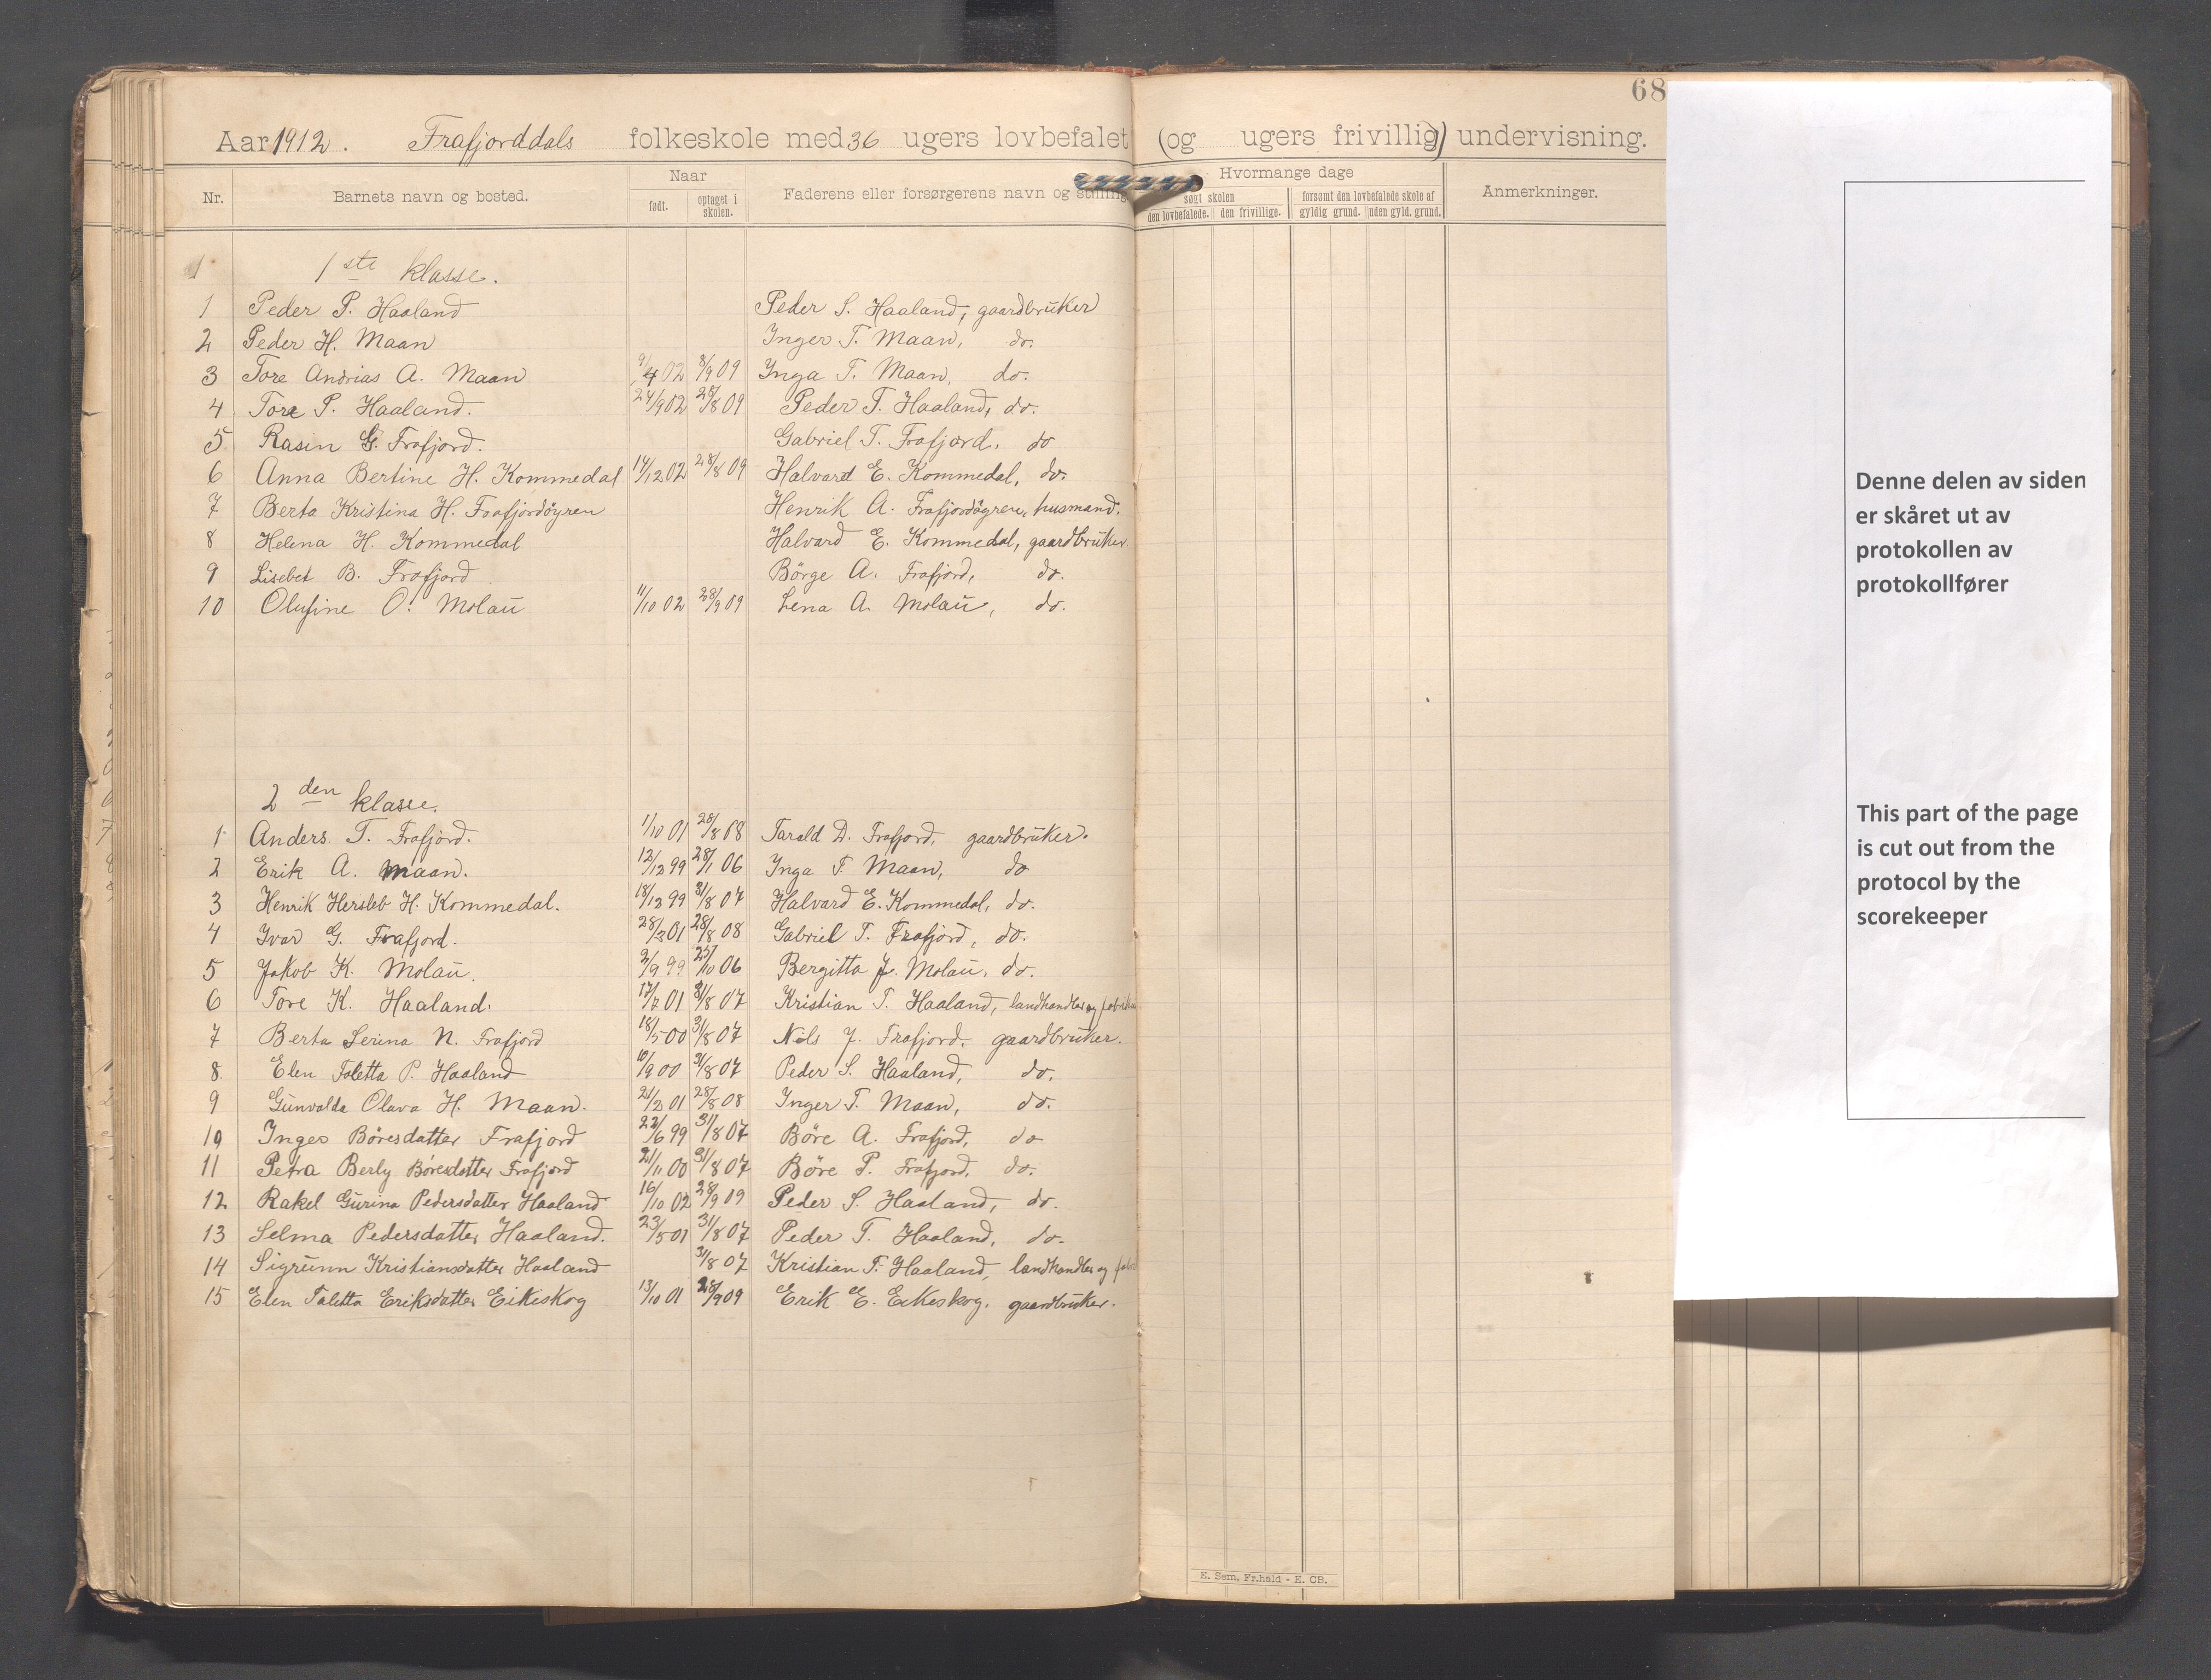 68
Aar 1912. Frafjorddals folkeskole med 36 ugers lovbefalet (og ugers frivillig) undervisning.
Nr. Barnets navn og bosted. Naar født. optaget i skolen. Faderens eller forsørgerens navn og stilling Hvormange dage søgt skolen den lovbefalede. den frivillige. forsømt den lovbefalede skole af gyldig grund. uden gyld. grund. Anmerkninger.
1 1ste klasse.
1 Peder P. Haaland Peder S. Haaland, gaardbruker
2 Peder H. Maan Inger T. Maan, do.
3 Tore Andrias A. Maan 9/4 02 8/9 09 Inga T. Maan, do.
4 Tore P. Haaland. 24/9 02 28/8 09 Peder T. Haaland, do.
5 Rasin G. Frafjord. Gabriel T. Frafjord, do
6 Anna Bertine H. Kommedal 14/12 02 28/8 09 Halvard E. Kommedal, do.
7 Berta Kristina H. Frafjordöyren Henrik A. Frafjordöyren, husmand.
8 Helena H. Kommedal Halvard E. Kommedal, gaardbruker.
9 Lisebet B. Frafjord Börge A. Frafjord, do.
10 Olufine O. Molau 11/10 02 28/9 09 Lena A. Molau, do.
2den klasse.
1 Anders T. Frafjord. 1/10 01 28/8 08 Tarald D. Frafjord, gaardbruker.
2 Erik A. Maan. 12/12 99 28/1 06 Inga T. Maan, do
3 Henrik Hersleb H. Kommedal. 18/12 99 31/8 07 Halvard E. Kommedal, do.
4 Ivar G. Frafjord. 28/3 01 28/8 08 Gabriel T. Frafjord, do.
5 Jakob K. Molau. 2/9 99 25/10 06 Bergitta J. Molau, do.
6 Tore K. Haaland. 17/7 01 31/8 07 Kristian T. Haaland, landhandler og
7 Berta Serina N. Frafjord 18/5 00 31/8 07 Nils J. Frafjord, gaardbruker.
8 Elen Taletta P. Haaland 10/9 00 31/8 07 Peder S. Haaland, do.
9 Gunvalda Olava H. Maan. 21/2 01 28/8 08 Inger T. Maan, do.
10 Inger Böresdatter Frafjord 22/6 99 31/8 07 Böre A. Frafjord, do
11 Petra Berly Böresdatter Frafjord 21/11 00 31/8 07 Böre P. Frafjord, do.
12 Rakel Gurina Pedersdatter Haaland 16/10 02 28/9 09 Peder S. Haaland, do.
13 Selma Pedersdatter Haaland. 23/5 01 31/8 07 Peder T. Haaland, do.
14 Sigrunn Kristiansdatter Haaland 31/8 07 Kristian T. Haaland, landhandler og
15 Elen Taletta Eriksdatter Eikeskog 13/10 01 28/9 09 Erik E. Eikeskog, gaardbruker.
E. Sem, Fr.hald - E. CB.
Denne delen av siden
er skåret ut av
protokollen av
protokollfører
This part of the page
is cut out from the
protocol by the
scorekeeper